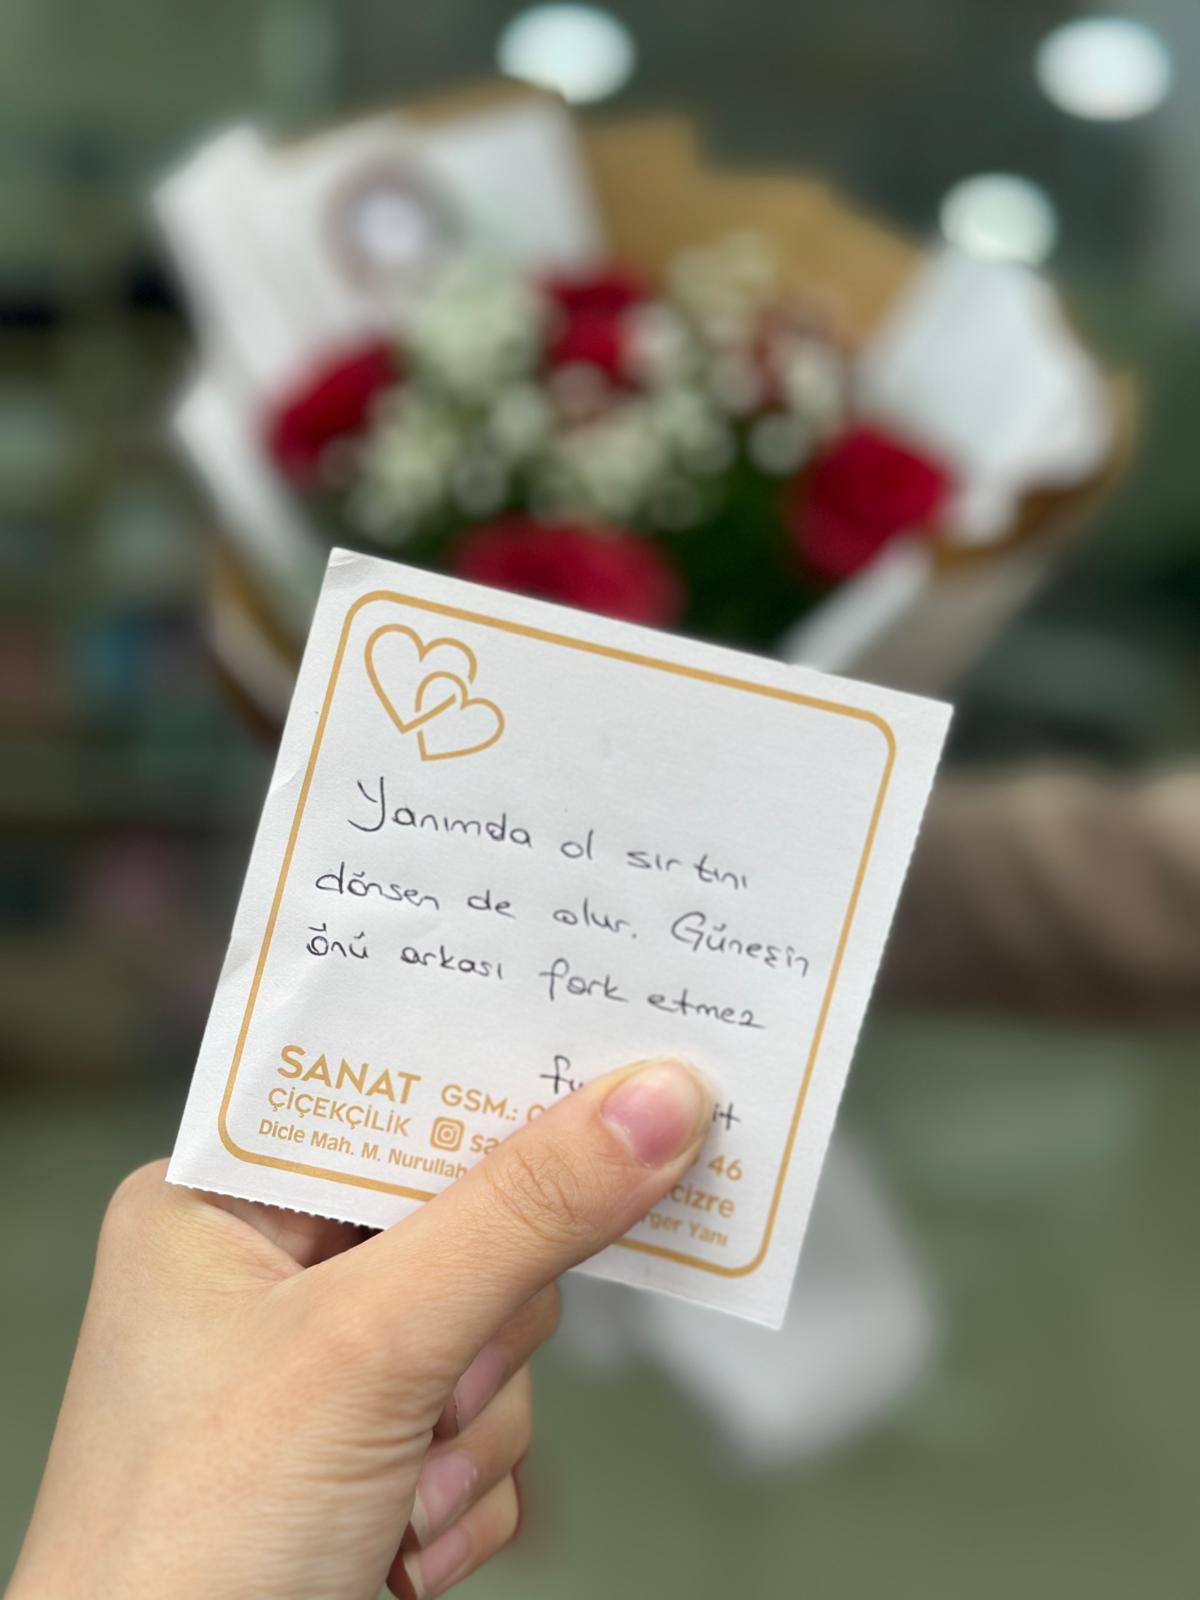 Yanımda ol sırtını
dönsen de olur. Güneşin
önü arkası fark etmez
SANAT
ÇİÇEKÇİLİK
GSM.:
46
Dicle Mah. M. Nurullah
Yanı